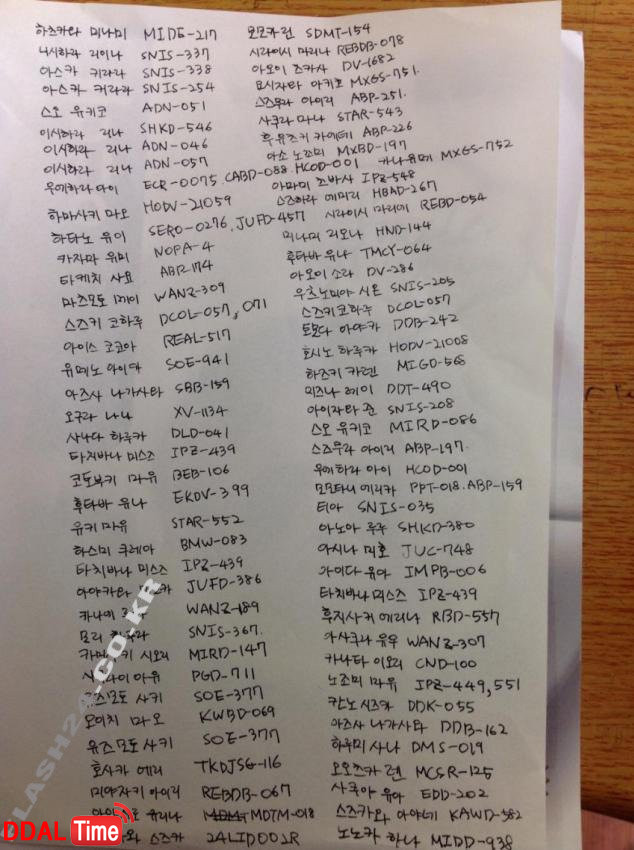 하즈키라 미나미 MIDE-217
니시하라 리이나 SNIS-337
아스카 키라라 SNIS-338
아스카 키라라 SNIS-254
스오 유키코 ADN-051
이시하라 리나 SHKD-546
이시하라 리나 ADN-046
이시하라 리나 ADN-057
우에하라 아이 ECR-0075, CABD-088. HCOD-001
하마사키 마오 HODV-21059
하타노 유이 SERO-0276, JUFD-457
카자마 유미 NOPA-4
타케치 사요 ABP-174
마츠모토 메이 WANZ-309
스즈키 코하루 DCOL-057, 071
아이스 코코아 REAL-517
유메노 아이카 SOE-941
아즈사 나가사타 SBB-159
오구라 나나 XV-1134
사나다 하루카 DLD-041
타치바나 미스즈 IPZ-439
코토부키 마유 BEB-106
후타바 유나 EKDV-399
유키 마유 STAR-552
하스미 쿠레아 BMW-083
타치바나 미스즈 IPZ-439
아야카와 JUFD-386
카나에 WANZ-189
모리 SNIS-367.
시오리 MIRD-147
아유 PGD-711
모토 사키 SOE-377
오이치 마오 KWBD-069
유즈모토 사키 SOE-377
호사카 에리 TKDJSG-116
미야자키 아이리 REBDB-067
유리나 MDTM-018
스즈카 24LID001R
모모카 린 SDMT-154
시라이시 마리나 REBDB-078
아오이 츠카사 DV-1682
요시자와 아키호 MXGS-751.
스즈무라 아이리 ABP-251.
사쿠라 마나 STAR-543
후유츠키 카에데 ABP-226
아소 노조미 MXBD-197
카나 유메 MXGS-752
아마미 츠바사 IPZ-548
스즈하라 에미리 HBAD-267
시라이시 마리에 REBD-054
미나미 리오나 HND-144
후타바 유나 TMCY-064
아오이 소라 DV-286
우츠노미야 시온 SNIS-205
스즈키 코하루 DCOL-057
토모다 아야카 DDB-242
호시노 하루카 HODV-21008
하즈키 카렌 MIGD-568
미즈나 레이 DDT-490
아이자와 준 SNIS-208
스오 유키코 MIRD-086
스즈무라 아이리 ABP-197.
우에하라 아이 HCOD-001
모모타니 에리카 PPT-018. ABP-159
티아 SNIS-035
아노아 루루 SHKD-380
아시나 미호 JUC-748
아이다 유아 IMPB-006
타치바나 미스즈 IPZ-439
후지사키 에리나 RBD-557
아사쿠라 유우 WANZ-307
카나타 이오리 CND-100
노조미 마유 IPZ-449, 551
칸노 시즈카 DDK-055
아즈사 나가사타 DDB-162
하루미 사나 DMS-019
오오츠카 렌 MCSR-125
사쿠아 유아 EDD-202
스즈카와 아야네 KAWD-582
노노카 하나 MIDD-938
FLASH24.CO.KR
DDAL Time